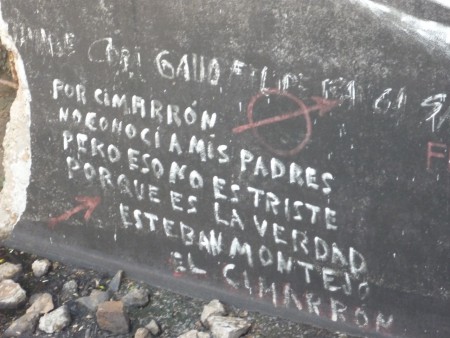 POR CIMARRÓN
NO CONOCÍ A MIS PADRES
PERO ESO NO ES TRISTE
PORQUE ES LA VERDAD
ESTEBAN MONTEJO
EL CIMARRÓN